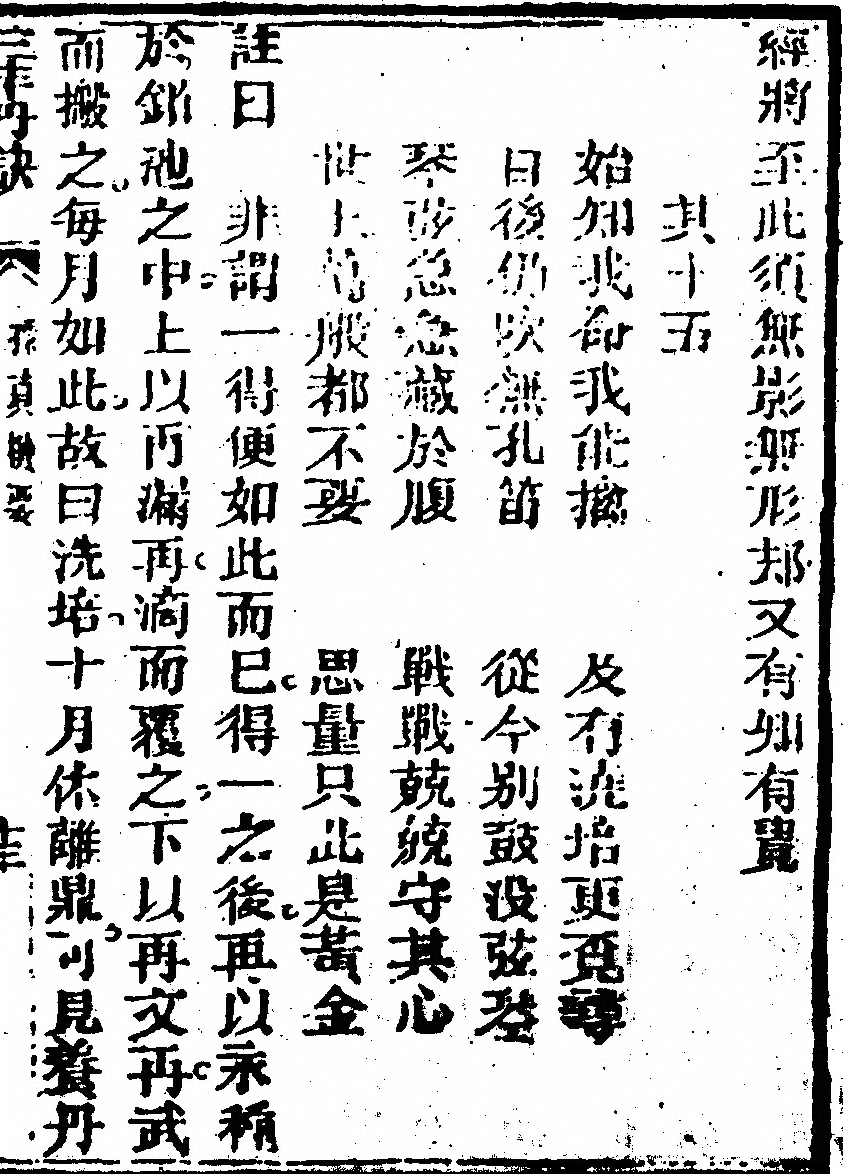 經將至此須無影無形却又有知有覺
其十五
始知我命我能 及有洗培更覓尋
日後仍吹無孔笛 從今別鼓没弦琴
琴 急急藏於腹 戰戰兢兢守其心
世上萬般都不要 思量只此是黃金
註曰 非謂一得便如此而已得一之後再以永稱
於 池之中上以再滿再滴而覆之下以再文再武
而搬之每月如此故曰洗培十月休離鼎可見養丹
三丰丹訣 真 要